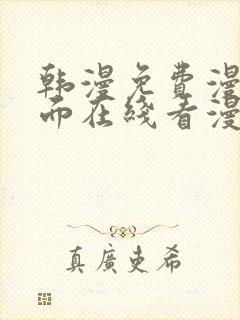 韩漫免费漫
而在线看漫
真廣史希